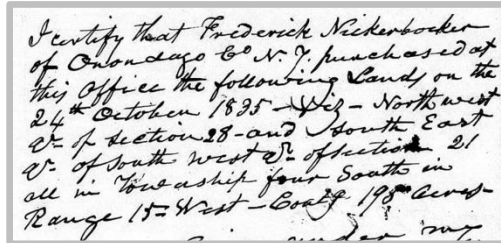 I certify that Frederick Nickerbocker
of Onondago Co N. Y. purchased at
this Office the following Lands on the
24th October 1835 - Viz - North west
qr of section 28 - and South East
qr of South west qr of section 21
all in Township four South in
Range 15 West - Contg 198 Acres
under my